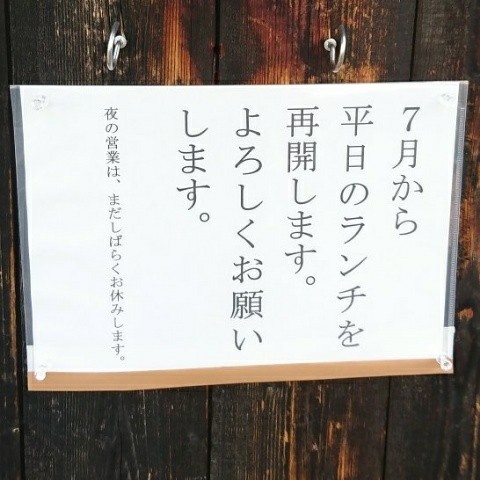 7月から
平日のランチを
再開します。
よろしくお願い
します。
夜の営業は、まだしばらくお休みします。